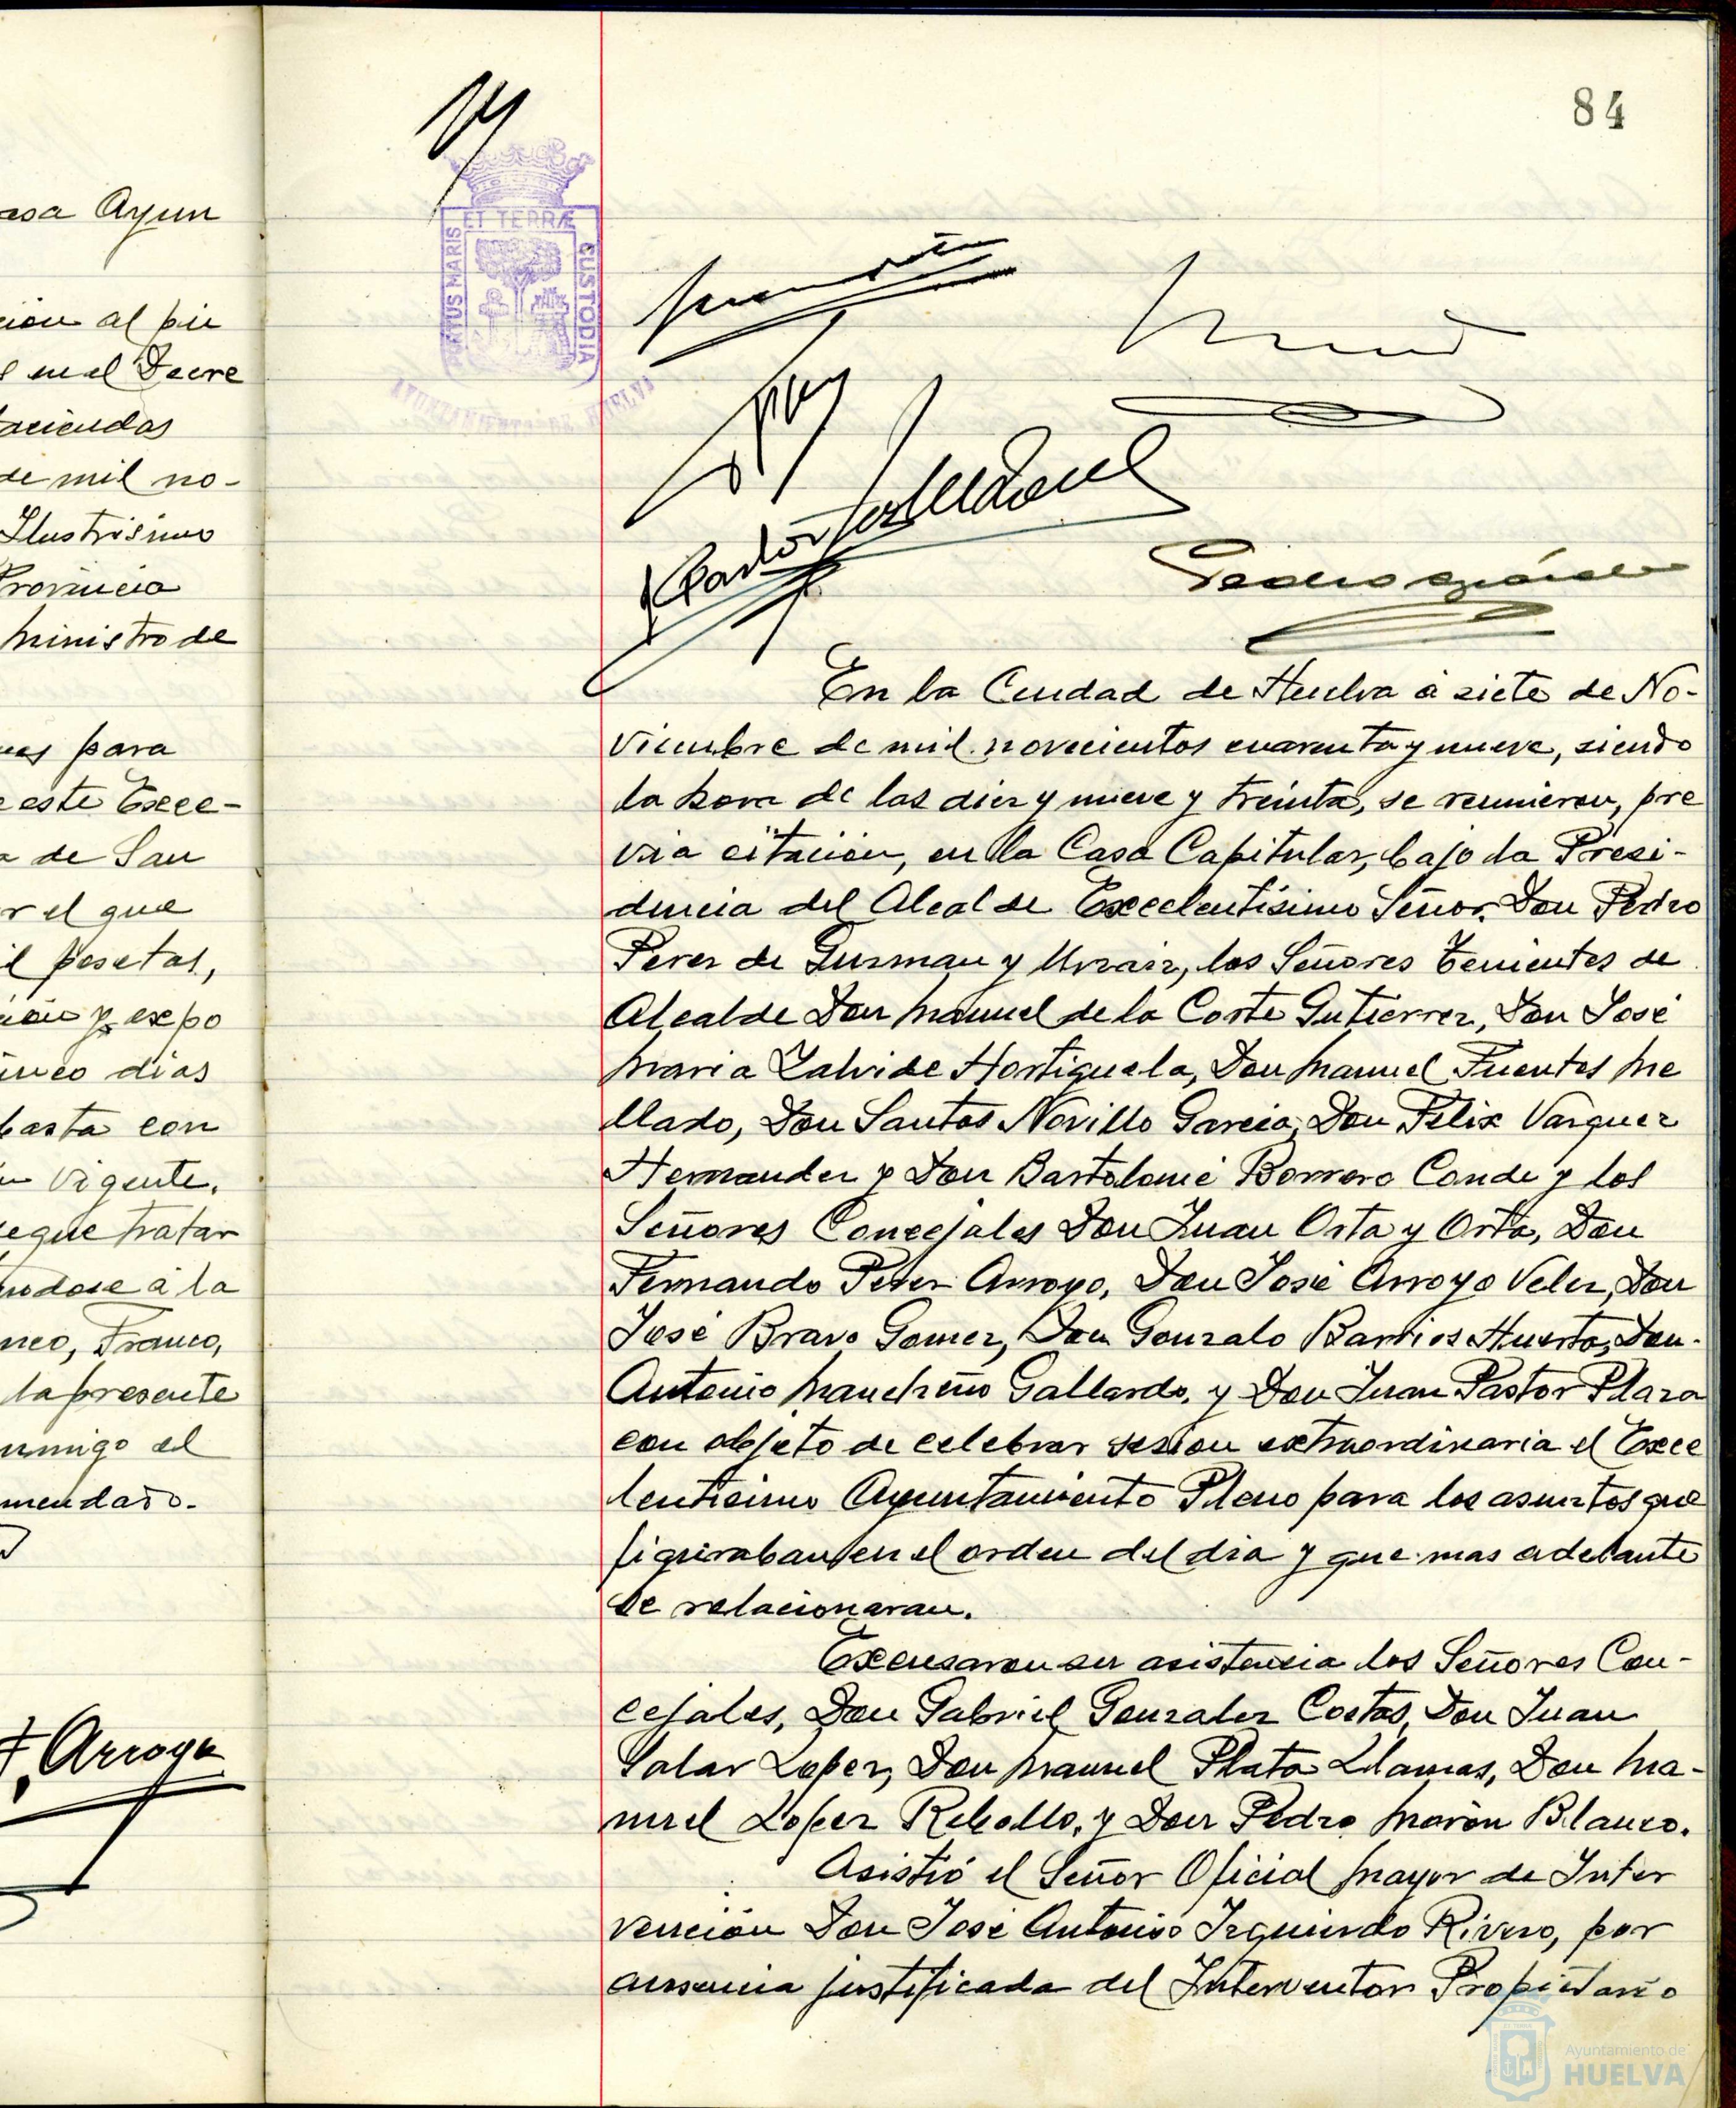 asa Ayun
cion al pie
s en el Decre
aciendas
de mil no-
Ilustrisimo
Provincia
Ministro de
nas para
e este Exce-
a de San
r el que
il pesetas,
ion y expo
inco dias
basta con
Vigente.
que tratar
ndose á la
neo, Franco,
la presente
nmigo el
mendado.
F. Arroyo
84
PORTUS MARIS ET TERRÆ CUSTODIA
AYUNTAMIENTO DE HUELVA
Pastor
Pedro
En la Ciudad de Huelva á siete de No-
viembre de mil novecientos cuarenta y nueve, siendo
la hora de las diez y nueve y treinta, se reunieron, pre
via citación, en la Casa Capitular, bajo la Presi-
dencia del Alcalde Excelentísimo Señor Don Pedro
Perez de Guzman y Urzaiz, los Señores Tenientes de
Alcalde Don Manuel de la Corte Gutierrez, Don José
Maria Zalvide Hortiguela, Don Manuel Fuentes Me
llado, Don Santos Novillo Garcia, Don Felix Vazquez
Hernandez y Don Bartolomé Borrero Conde y los
Señores Concejales Don Juan Orta y Orta, Don
Fernando Perez Arroyo, Don José Arroyo Velez, Don
José Bravo Gomez, Don Gonzalo Barrios Huerta, Don
Antonio Mancheño Gallardo, y Don Juan Pastor Plaza
con objeto de celebrar sesion extraordinaria el Exce
lentisimo Ayuntamiento Pleno para los asuntos que
figuraban en el orden del dia y que mas adelante
se relacionaran.
Excusaron su asistencia los Señores Con-
cejales, Don Gabriel Gonzalez Costas, Don Juan
Salar Lopez, Don Manuel Plata Llamas, Don Ma-
nuel Lopez Rebollo, y Don Pedro Morón Blanco.
Asistió el Señor Oficial Mayor de Inter
vención Don José Antonio Izquierdo Rivero, por
ausencia justificada del Interventor Propietario
Ayuntamiento de
HUELVA